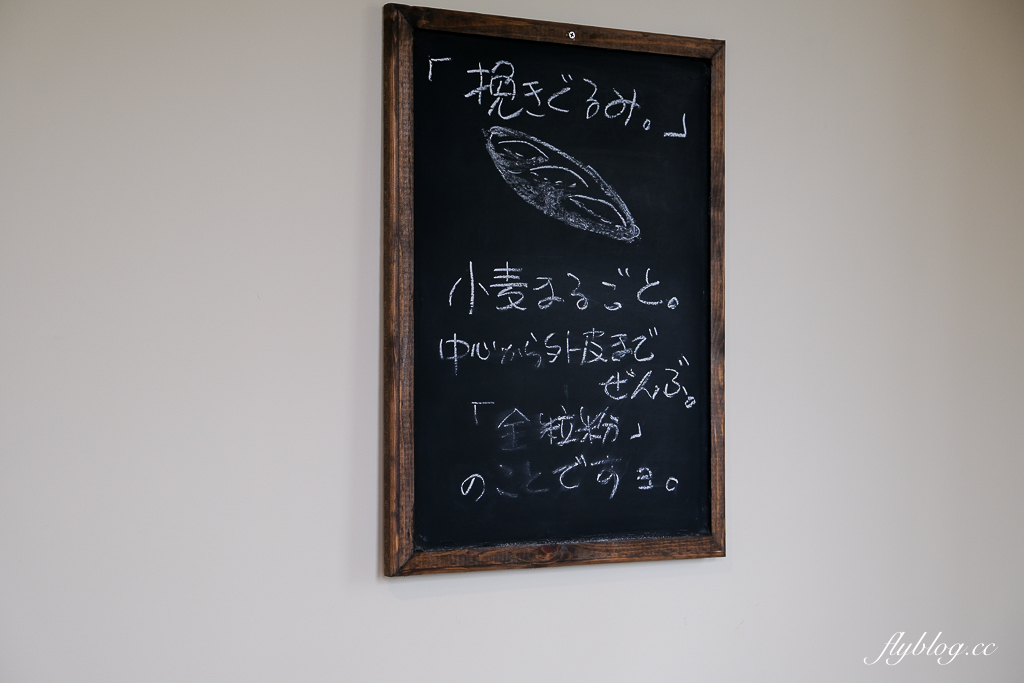 「挽きぐるみ。」
小麦まるごと。
中心から外皮まで
ぜんぶ。
「全粒粉」
のことですヨ。
flyblog.cc